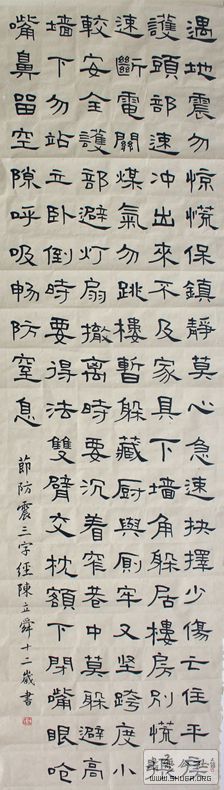 遇地震勿惊慌保鎮靜莫心急速抉擇少傷亡住平房
護頭部速冲出來不及家具下墙角躲居樓房別慌
速斷電關煤氣勿跳樓暫躲藏厨與厠牢又坚跨度小
較安全護部避灯扇撤離時要沉着窄巷中莫躲避高
墙下勿站立卧倒時要得法雙臂交枕額下閉嘴眼呛
嘴鼻留空隙呼吸畅防窒息
節防震三字經陳立舜十二歲書